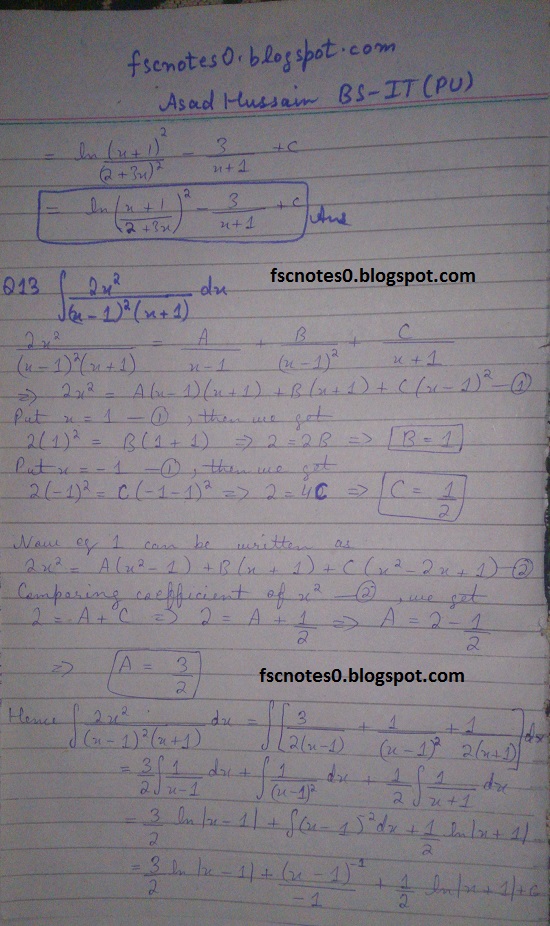 fscnotes0.blogspot.com
Asad Hussain BS-IT(PU)
= ln (x+1)²/(2+3x)² - 3/(x+1) + c
= ln((x+1)/(2+3x))² - 3/(x+1) + c Ans
fscnotes0.blogspot.com
Q13 ∫ 2x²/((x-1)²(x+1)) dx
2x²/((x-1)²(x+1)) = A/(x-1) + B/(x-1)² + C/(x+1)
⇒ 2x² = A(x-1)(x+1) + B(x+1) + C(x-1)² - ①
Put x = 1 - ①, then we get
2(1)² = B(1+1) ⇒ 2 = 2B ⇒ B = 1
Put x = -1 - ①, then we get
2(-1)² = C(-1-1)² ⇒ 2 = 4C ⇒ C = 1/2
Now eq 1 can be written as
2x² = A(x²-1) + B(x+1) + C(x²-2x+1) - ②
Comparing coefficient of x² - ②, we get
2 = A + C ⇒ 2 = A + 1/2 ⇒ A = 2 - 1/2
⇒ A = 3/2
fscnotes0.blogspot.com
Hence ∫ 2x²/((x-1)²(x+1)) dx = ∫[3/(2(x-1)) + 1/(x-1)² + 1/(2(x+1))] dx
= 3/2 ∫ 1/(x-1) dx + ∫ 1/(x-1)² dx + 1/2 ∫ 1/(x+1) dx
= 3/2 ln|x-1| + ∫(x-1)⁻² dx + 1/2 ln|x+1|
= 3/2 ln|x-1| + (x-1)⁻¹/-1 + 1/2 ln|x+1| + c